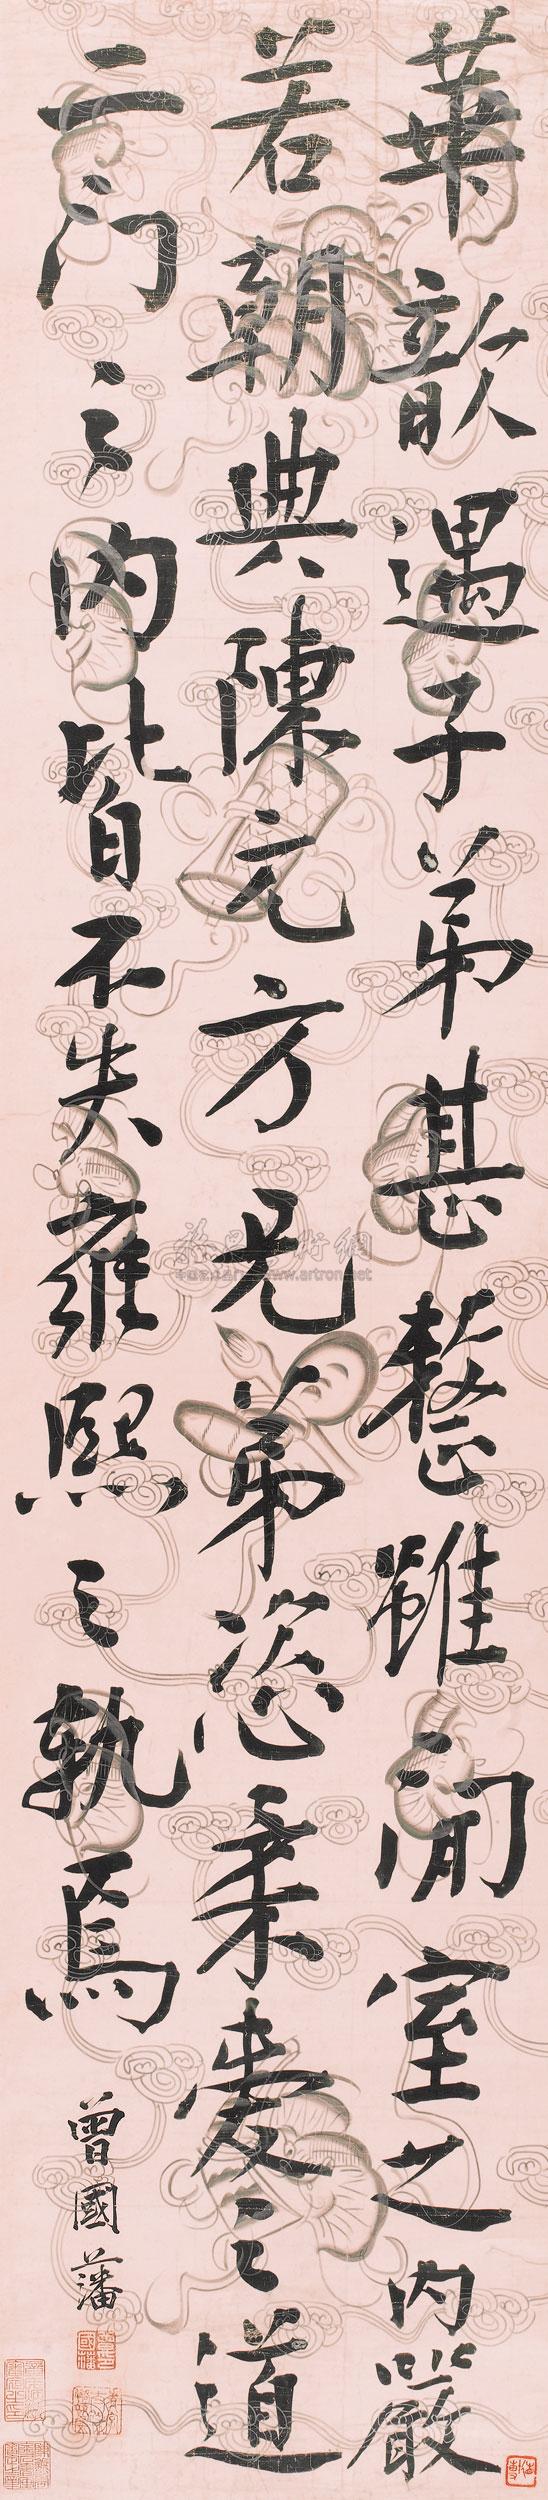 華歆遇子弟甚整雖閒室之內嚴
若朝典陳元方兄弟恣柔愛之道
二門之內皆不失雍熙之軌焉
曾國藩
雅昌藝術網
www.artron.net